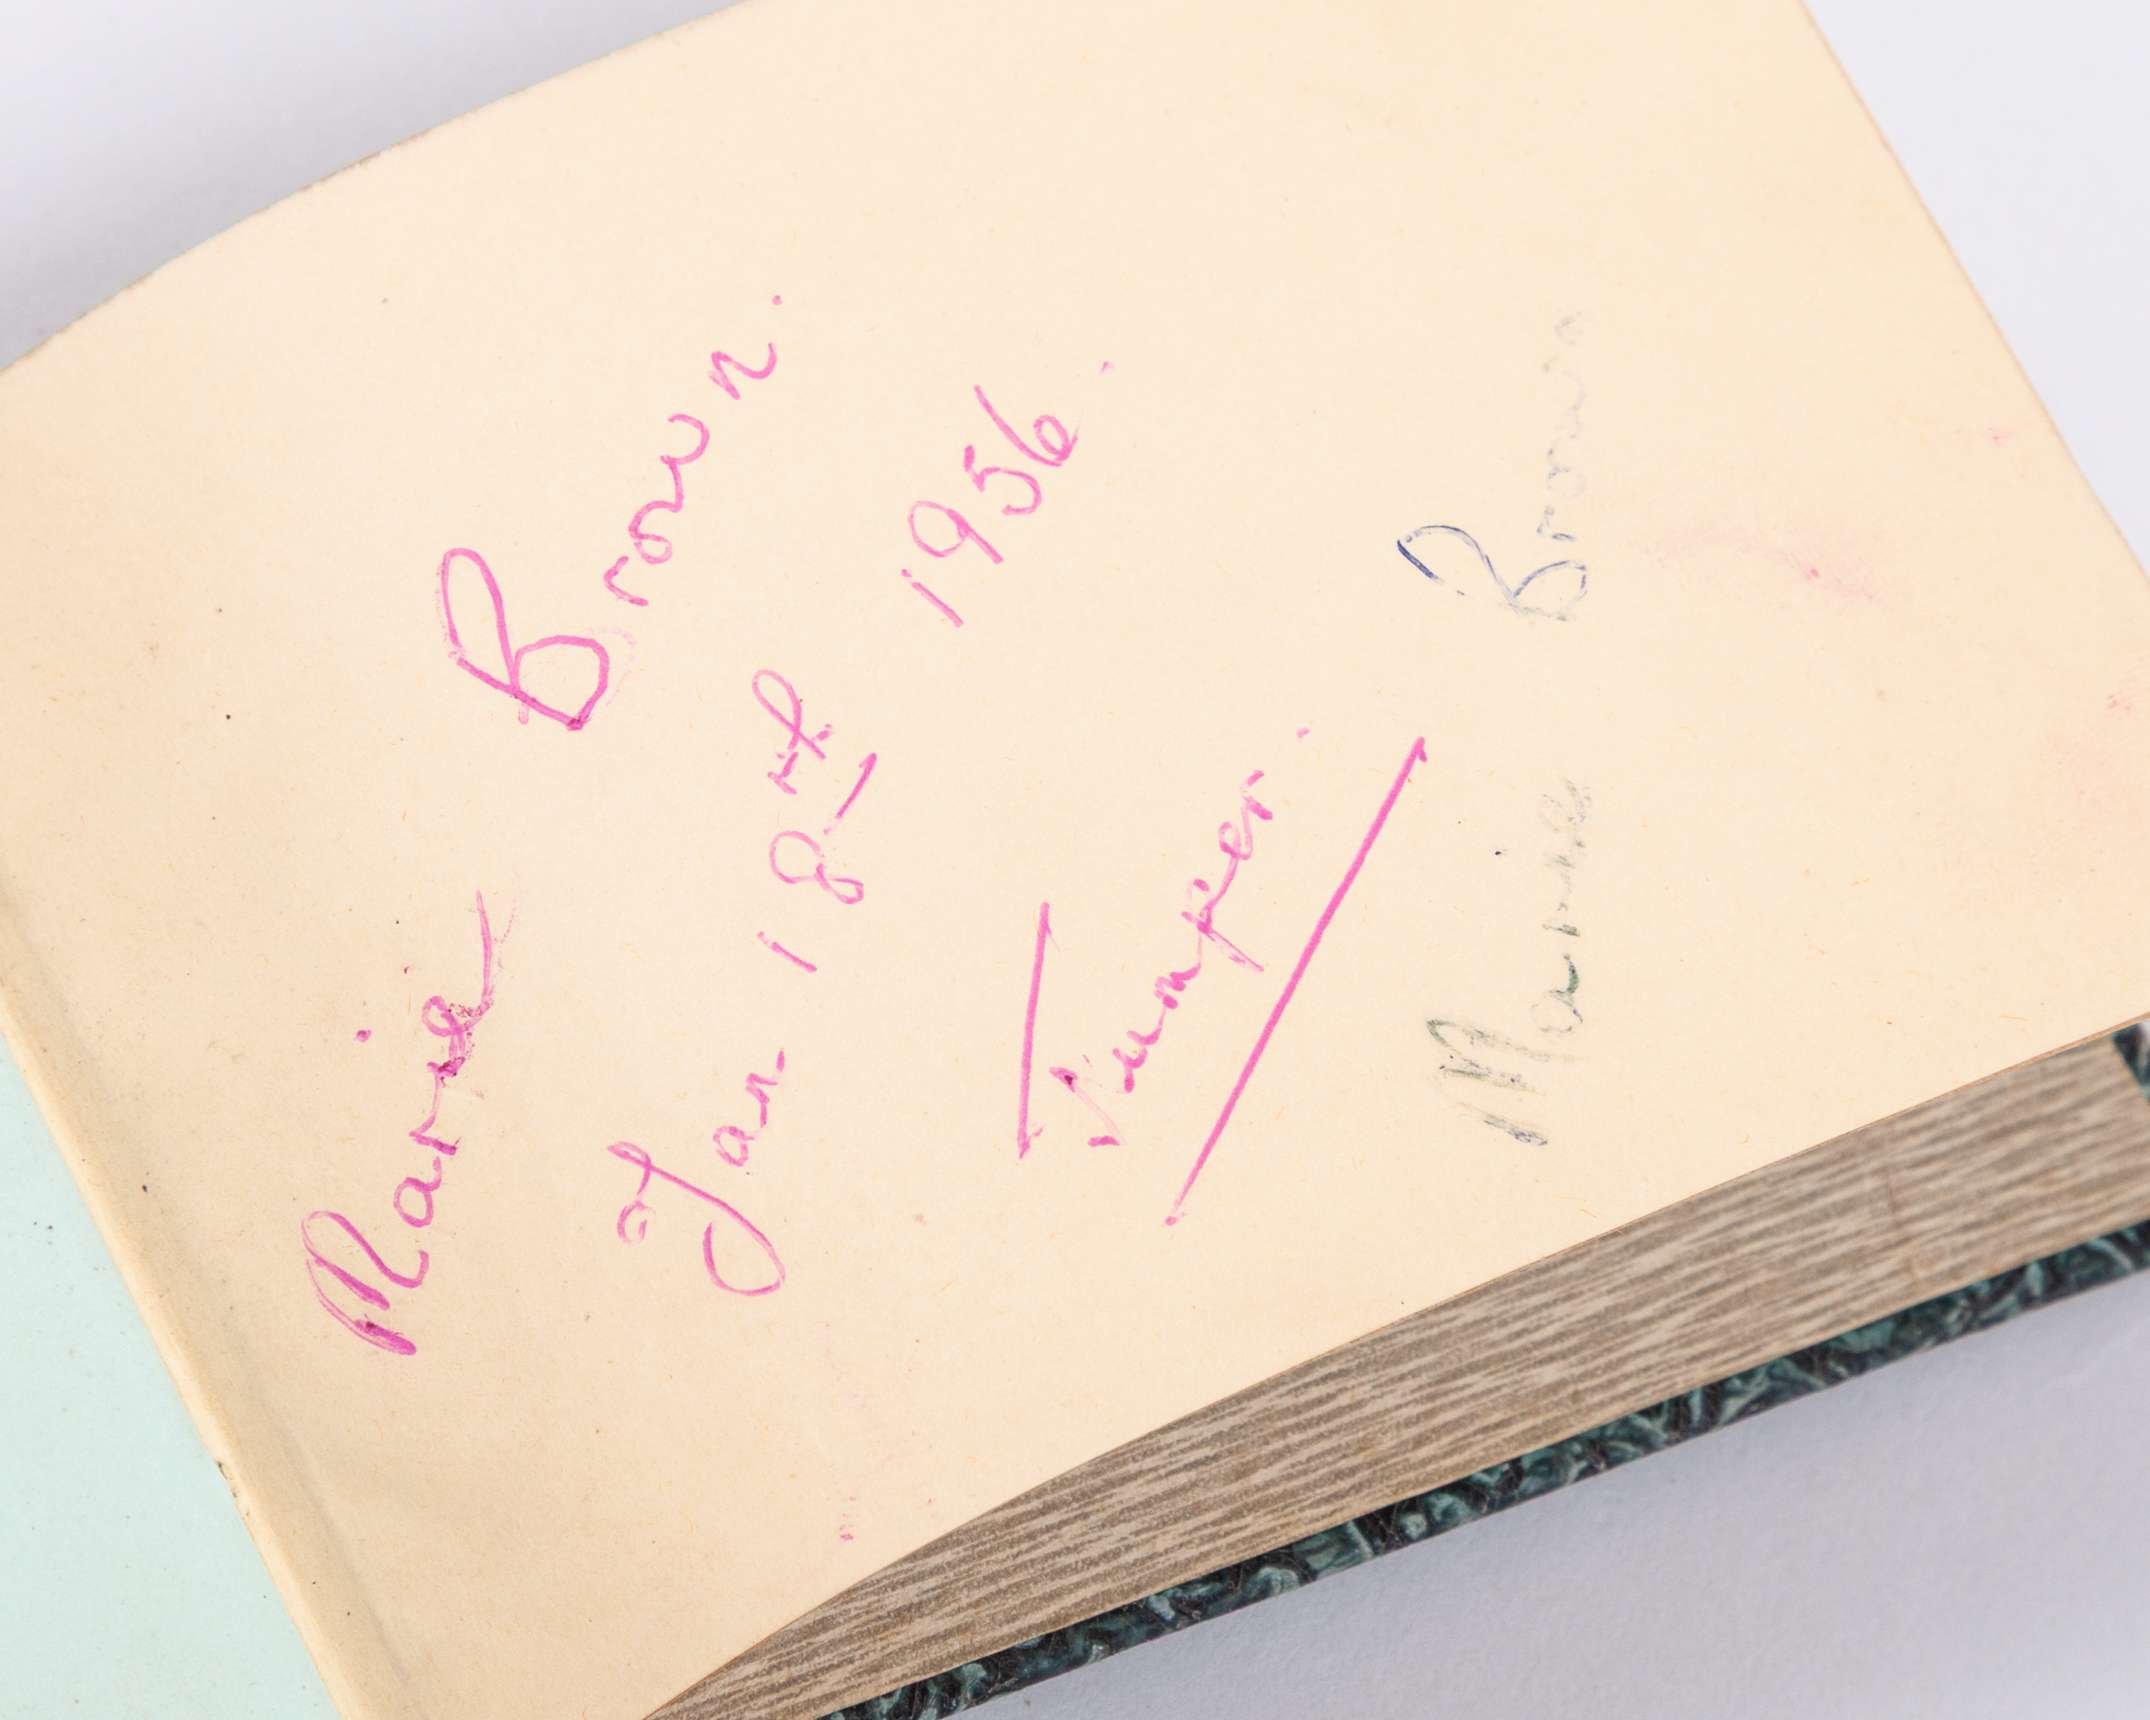 Marie Brown.
Jan 18th 1956.
Jumper.
Brown